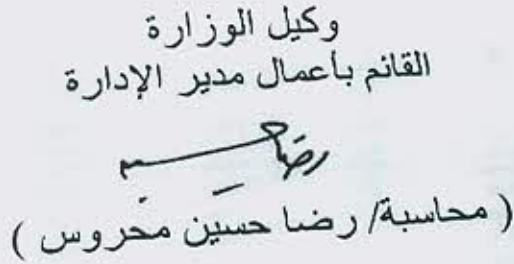 وكيل الوزارة
القائم بأعمال مدير الإدارة
رضا حسين
( محاسبة/ رضا حسين محروس )